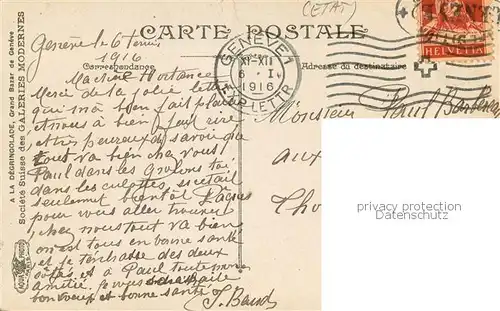 (ETAT)
CARTE POSTALE
Correspondance
Adresse du destinataire
GENÈVE 1
XI-XII
6. I.
1916
EXP. LETTR
HELVETIA
A LA DÉGRINGOLADE, Grand Bazar de Genève
Société Suisse des GALERIES MODERNES
Genève le 6
1916
Ma chère Hortance
Merci de la jolie lettre
qui m'a bien fait plaisir
et nous a bien fait rire
heureux de savoir que
tout va bien chez vous!
Paul dans les
dans les culottes, si c'était
seulement bientôt Pâques
pour vous aller trouver
chez nous tout va bien
on est tous en bonne santé
et je t'embrasse des deux
côtés et à Paul toute mon
amitié. Je vous souhaite
bonheur et bonne santé
Monsieur Paul
aux
privacy protection
www.vikinfo.com